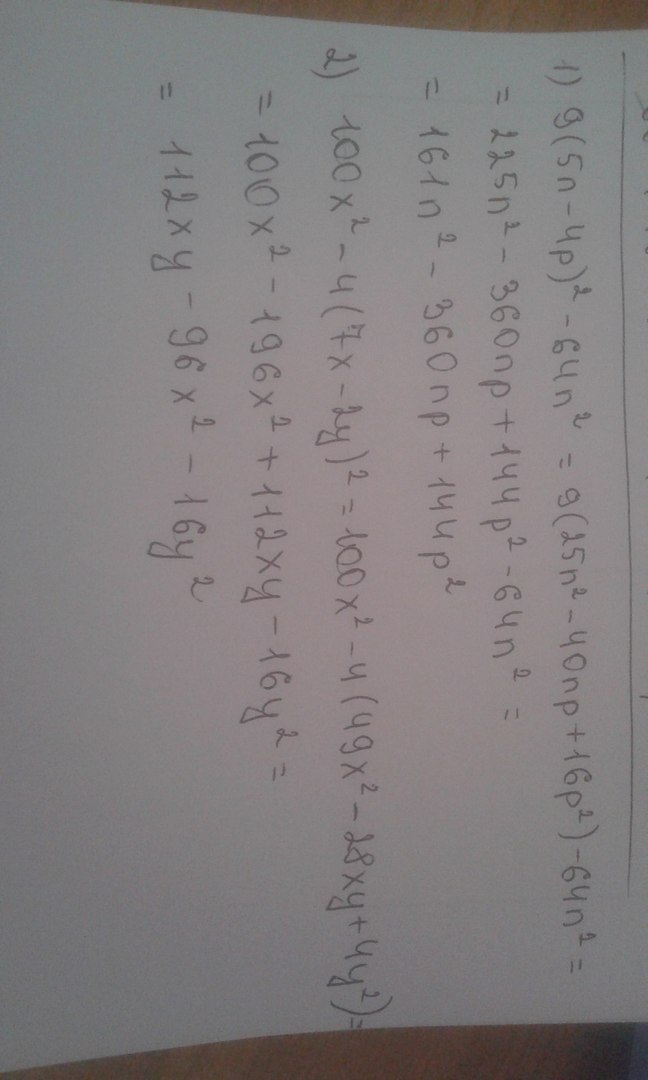 1) 9(5n-4p)² - 64n² = 9(25n² - 40np + 16p²) - 64n² =
= 225n² - 360np + 144p² - 64n² =
= 161n² - 360np + 144p²
2) 100x² - 4(7x - 2y)² = 100x² - 4(49x² - 28xy + 4y²) =
= 100x² - 196x² + 112xy - 16y² =
= 112xy - 96x² - 16y²